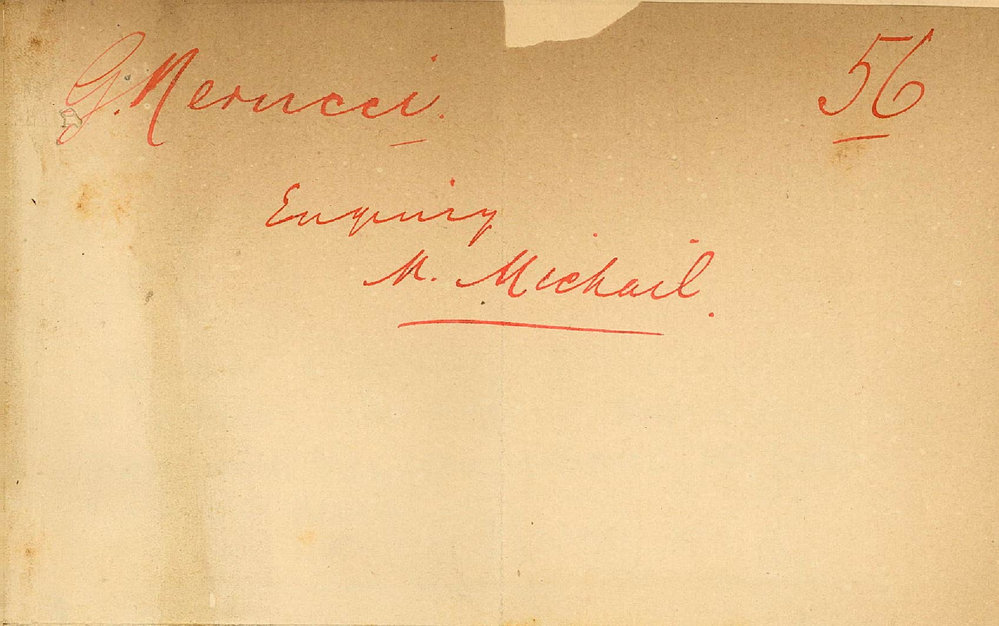 G. Nerucci. 56
Enquiry
M. Michail.